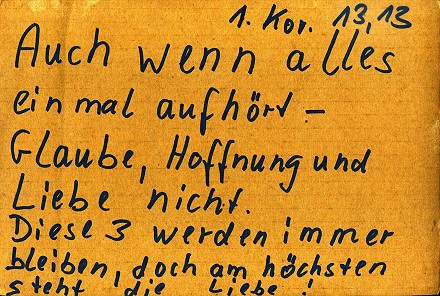 1. Kor. 13,13
Auch wenn alles
einmal aufhört –
Glaube, Hoffnung und
Liebe nicht.
Diese 3 werden immer
bleiben, doch am höchsten
steht die Liebe!